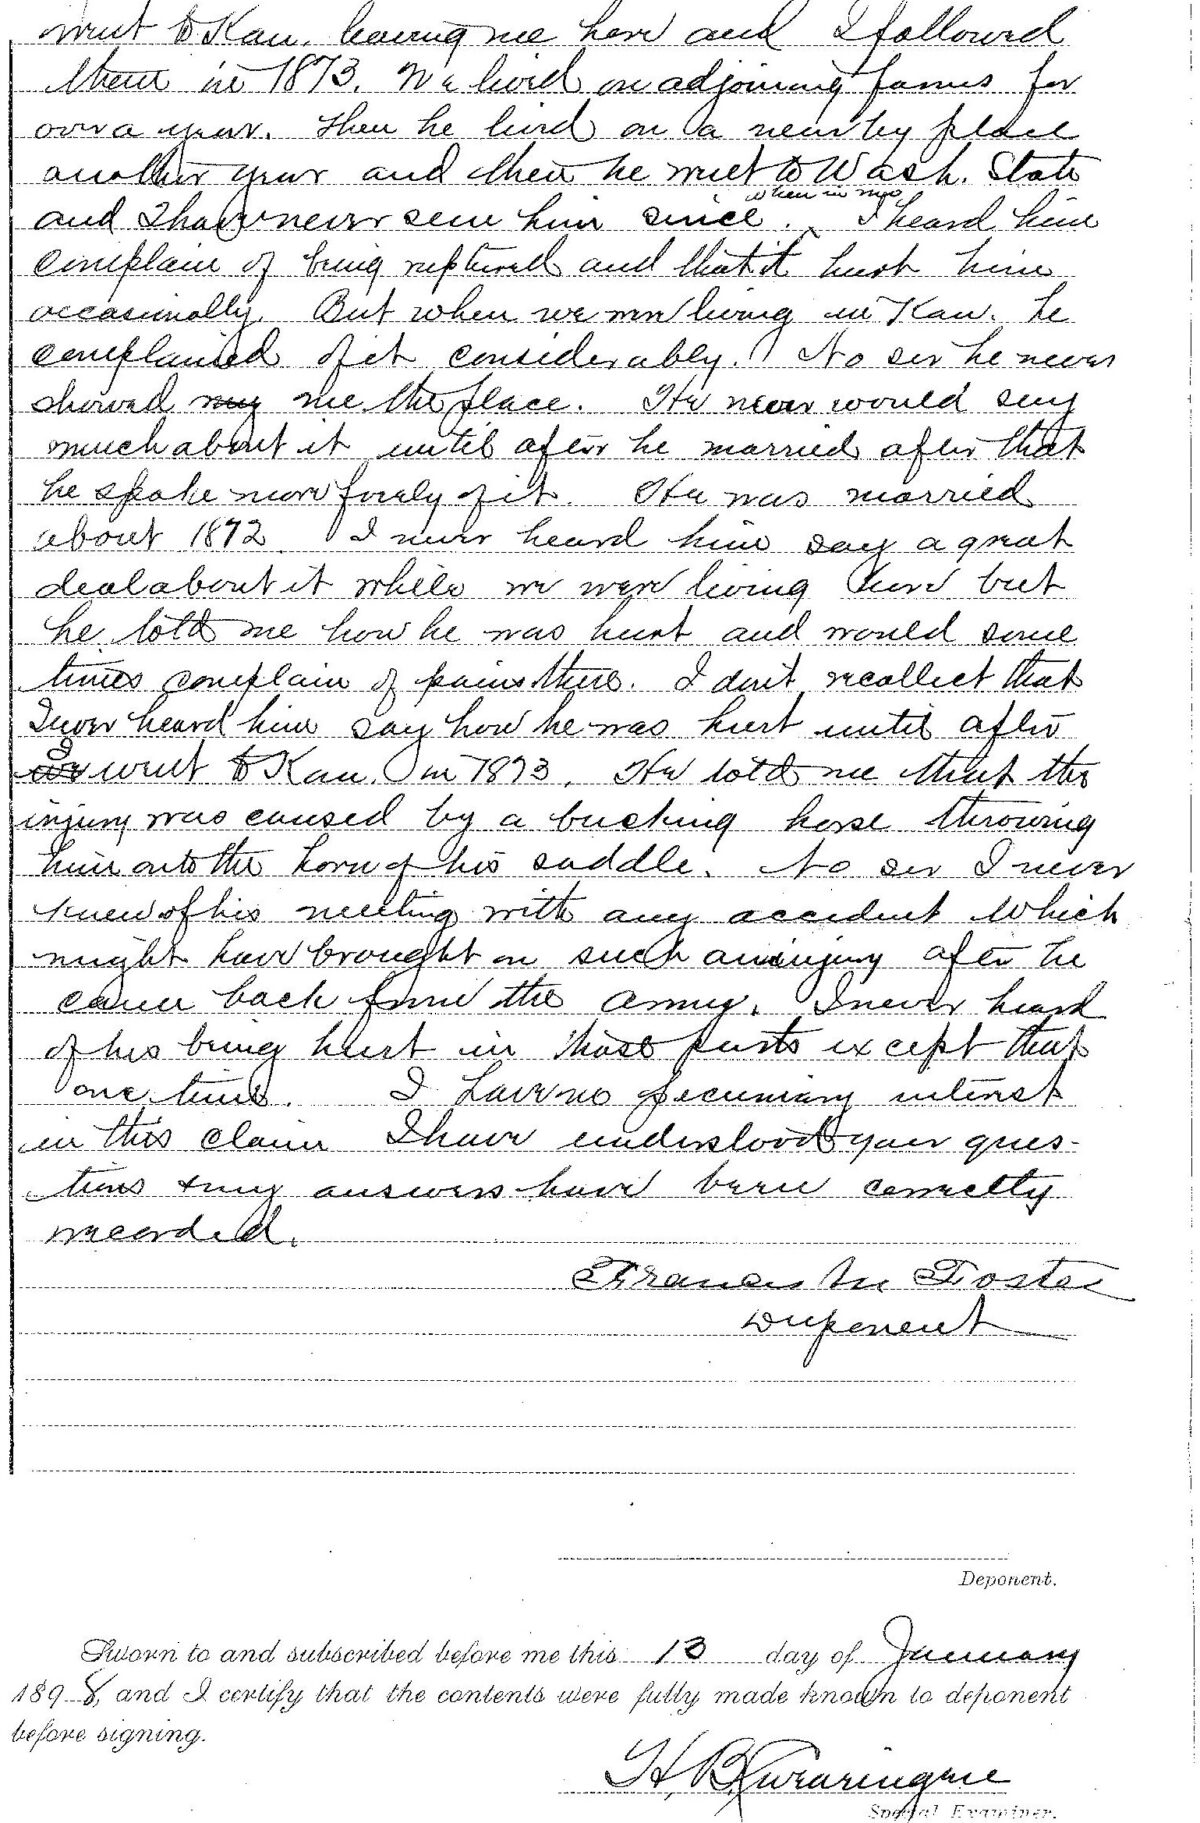 went to Kan. leaving me here and I followed
them in 1873. We lived on adjoining farms for
over a year. Then he lived on a near by place
another year and then he went to Wash. State
and I have never seen him since. when in mo I heard him
complain of being ruptured and that it hurt him
occasionally. But when we were living in Kan. he
complained of it considerably. No sir he never
showed my me the place. He never would say
much about it until after he married after that
he spoke more freely of it. He was married
about 1872. I never heard him say a great
deal about it while we were living here but
he told me how he was hurt and would some
times complain of pains there. I don't recollect that
I ever heard him say how he was hurt until after
I went to Kan. in 1873. He told me that the
injury was caused by a bucking horse throwing
him onto the horn of his saddle. No sir I never
knew of his meeting with any accident which
might have brought on such an injury after he
came back from the army. I never heard
of his being hurt in those parts except that
one time. I have no pecuniary interest
in this claim I have understood your ques-
tions & my answers have been correctly
recorded.
Francis M Foster
Deponent
Deponent.
Sworn to and subscribed before me this 13 day of January
1898, and I certify that the contents were fully made known to deponent
before signing.
H. B. Swearingen
Special Examiner.